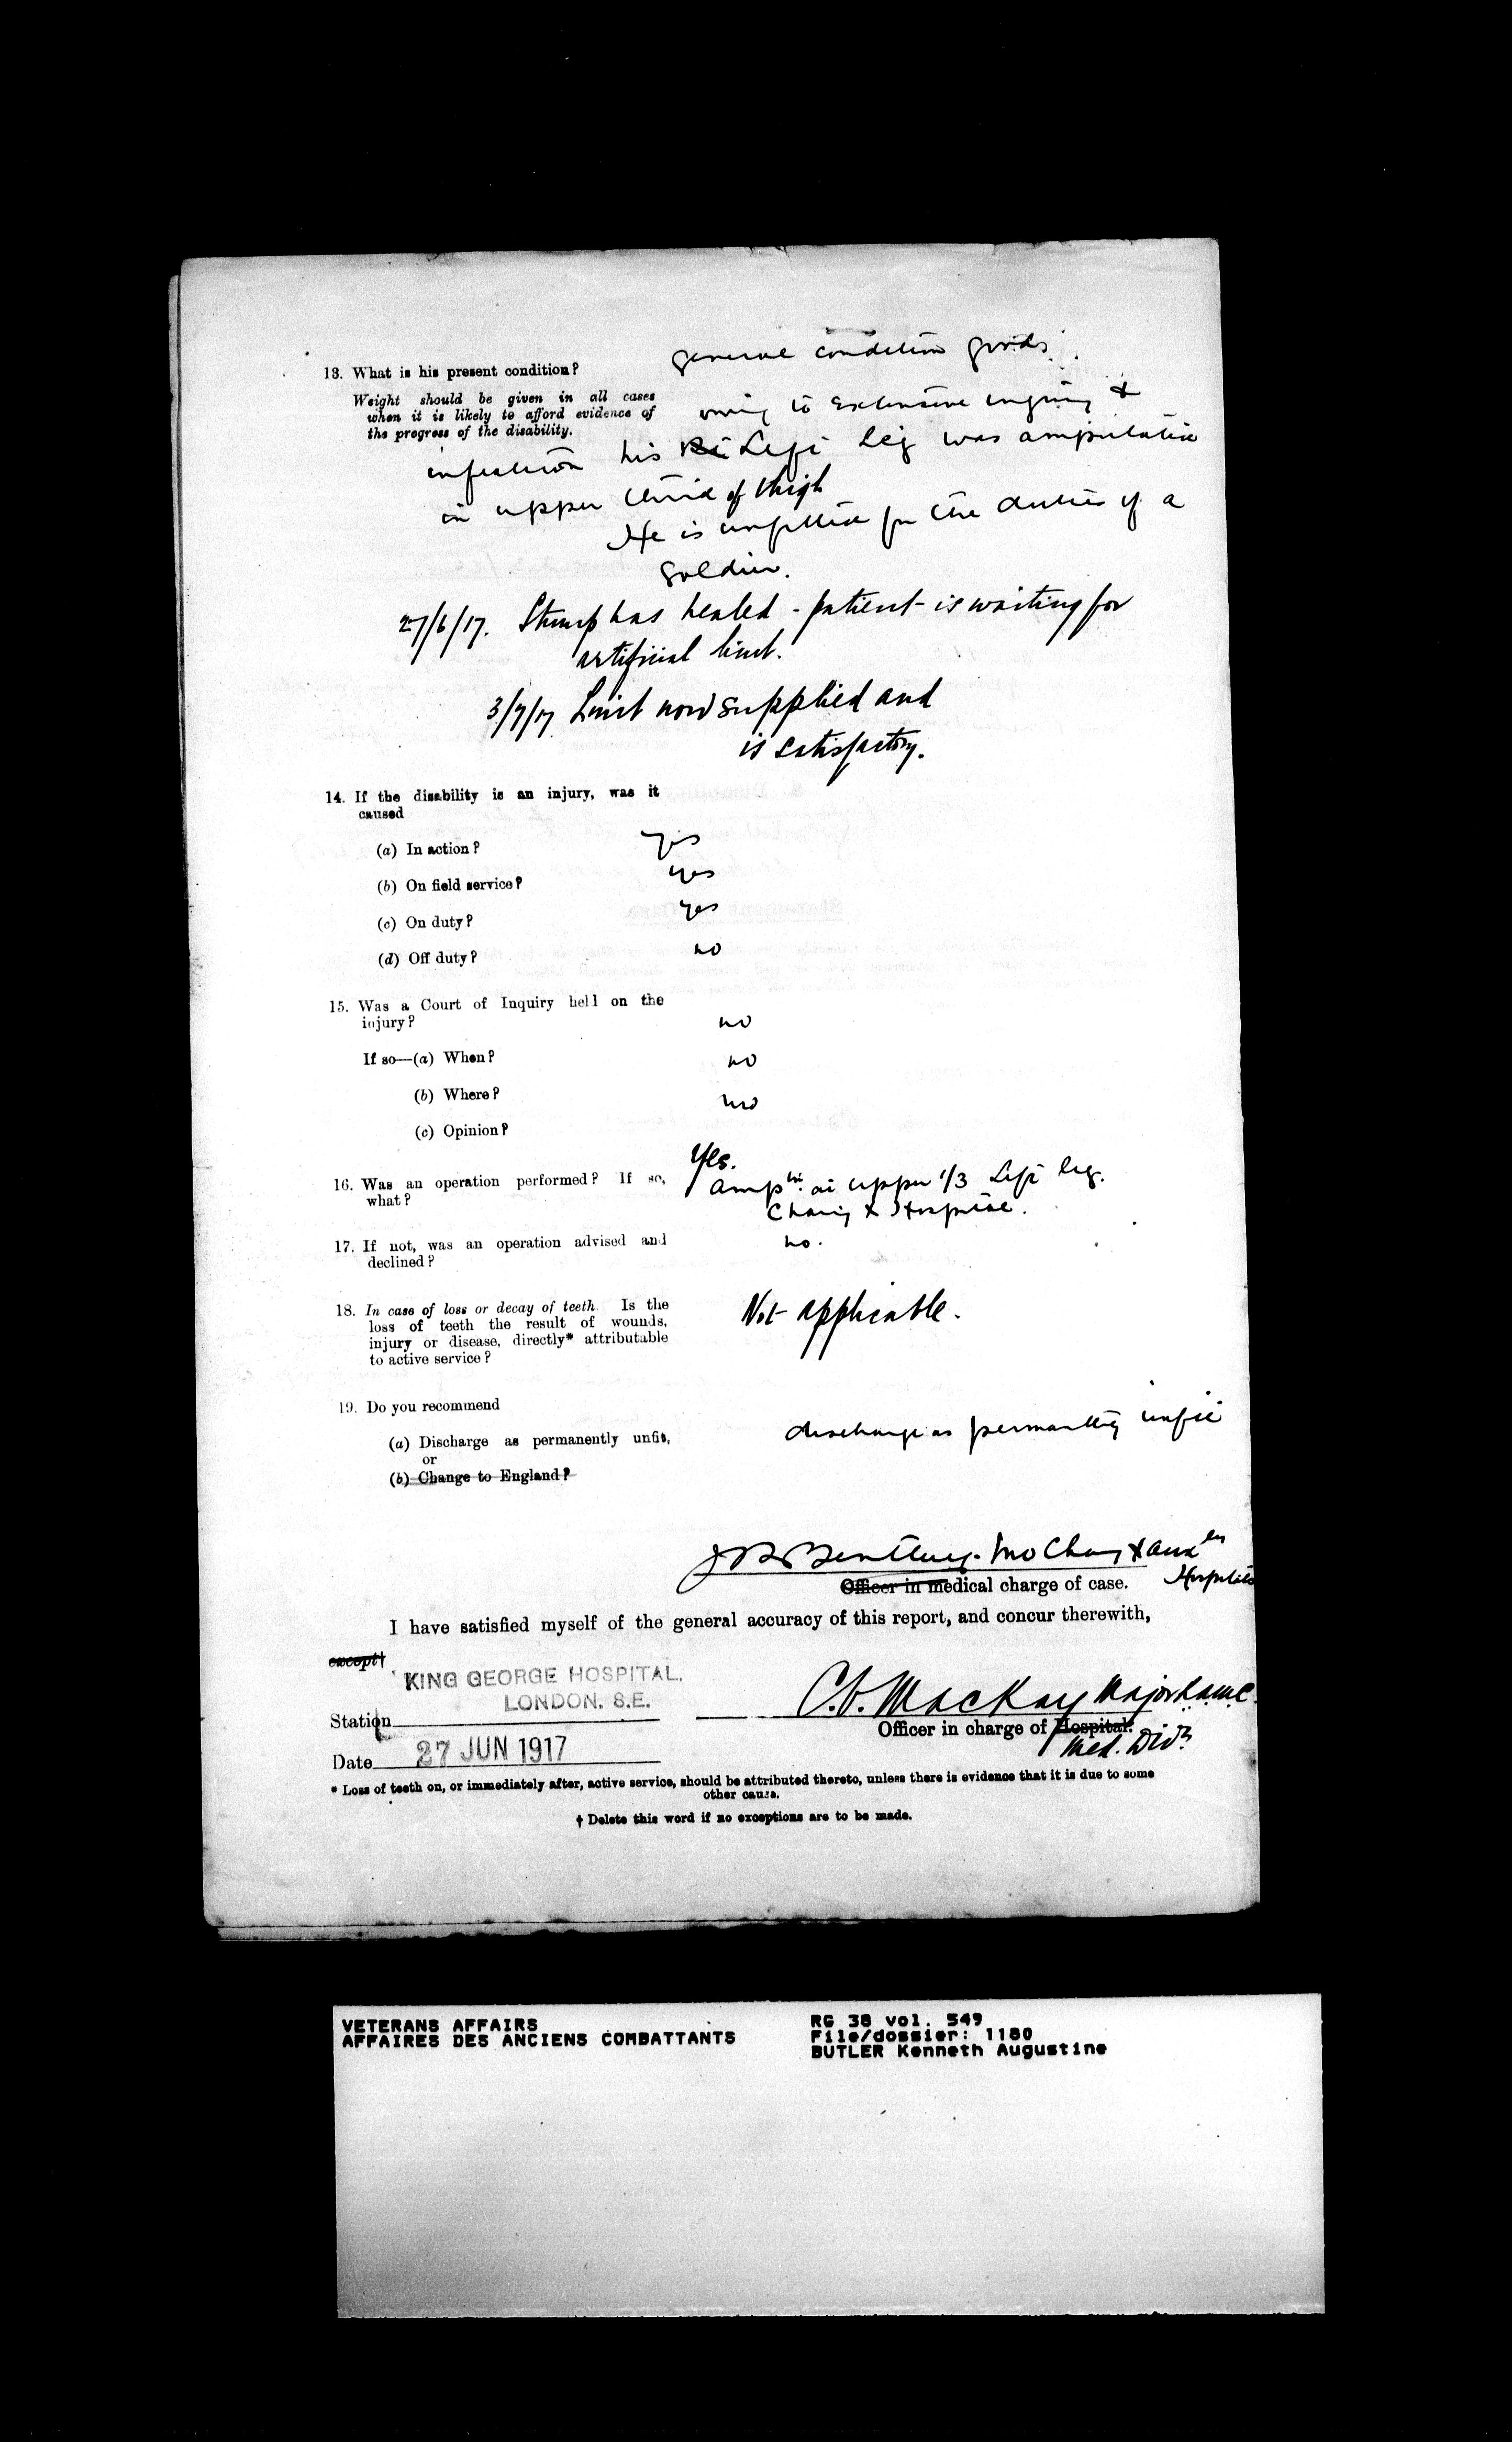 general condition good.
13. What is his present condition?
Weight should be given in all cases
when it is likely to afford evidence of
the progress of the disability.
owing to extensive injury &
infection his Left leg was amputated
in upper third of thigh
He is unfitted for the duties of a
soldier.
27/6/17. Stump has healed - patient is waiting for
artificial limb.
3/7/17 Limb now supplied and
is satisfactory.
14. If the disability is an injury, was it
caused
(a) In action? yes
(b) On field service? yes
(c) On duty? yes
(d) Off duty? no
15. Was a Court of Inquiry held on the
injury? no
If so—(a) When? no
(b) Where? no
(c) Opinion?
Yes.
16. Was an operation performed? If so, Ampn. at upper 1/3 Left leg.
what? Charing X Hospital.
17. If not, was an operation advised and no.
declined?
18. In case of loss or decay of teeth. Is the Not applicable.
loss of teeth the result of wounds,
injury or disease, directly* attributable
to active service?
19. Do you recommend
(a) Discharge as permanently unfit, discharge as permantly unfit
or
(b) Change to England?
MO Charing X
Officer in medical charge of case. Hospitals
I have satisfied myself of the general accuracy of this report, and concur therewith,
except†
KING GEORGE HOSPITAL.
LONDON. S.E.
Station C.V. Mackay Major R.A.M.C.
Officer in charge of Hospital.
Med. Divn
Date 27 JUN 1917
* Loss of teeth on, or immediately after, active service, should be attributed thereto, unless there is evidence that it is due to some
other cause.
† Delete this word if no exceptions are to be made.
VETERANS AFFAIRS
AFFAIRES DES ANCIENS COMBATTANTS
RG 38 vol. 549
File/dossier: 1180
BUTLER Kenneth Augustine